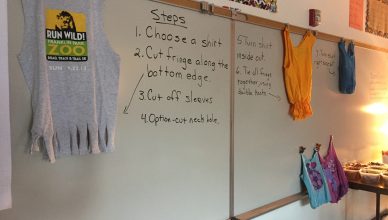 RUN WILD!
FRANKLIN PARK
ZOO
ROAD, TRACK & TRAIL 5K
Steps
1. Choose a shirt
2. Cut fringe along the
bottom edge.
3. Cut off sleeves
4. Option-cut neck hole.
5. Turn shirt
inside out.
6. Tie all fringe
together, using
double knots